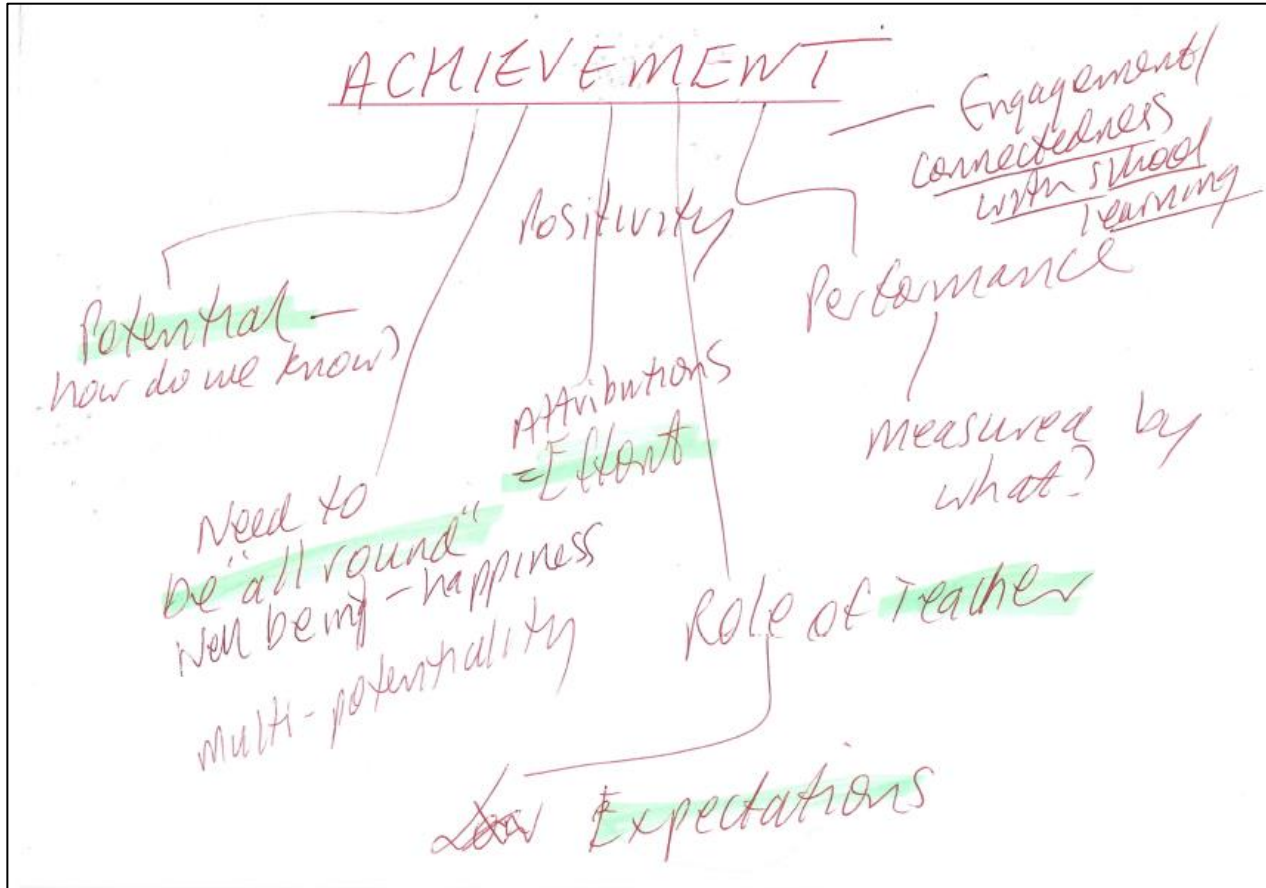 ACHIEVEMENT
Engagement/
connectedness
with school
learning
Positivity
Performance
Potential —
how do we know?
Attributions
= Effort
measured by
what?
Need to
be "all round"
well being - happiness
multi-potentiality
Role of Teacher
Expectations